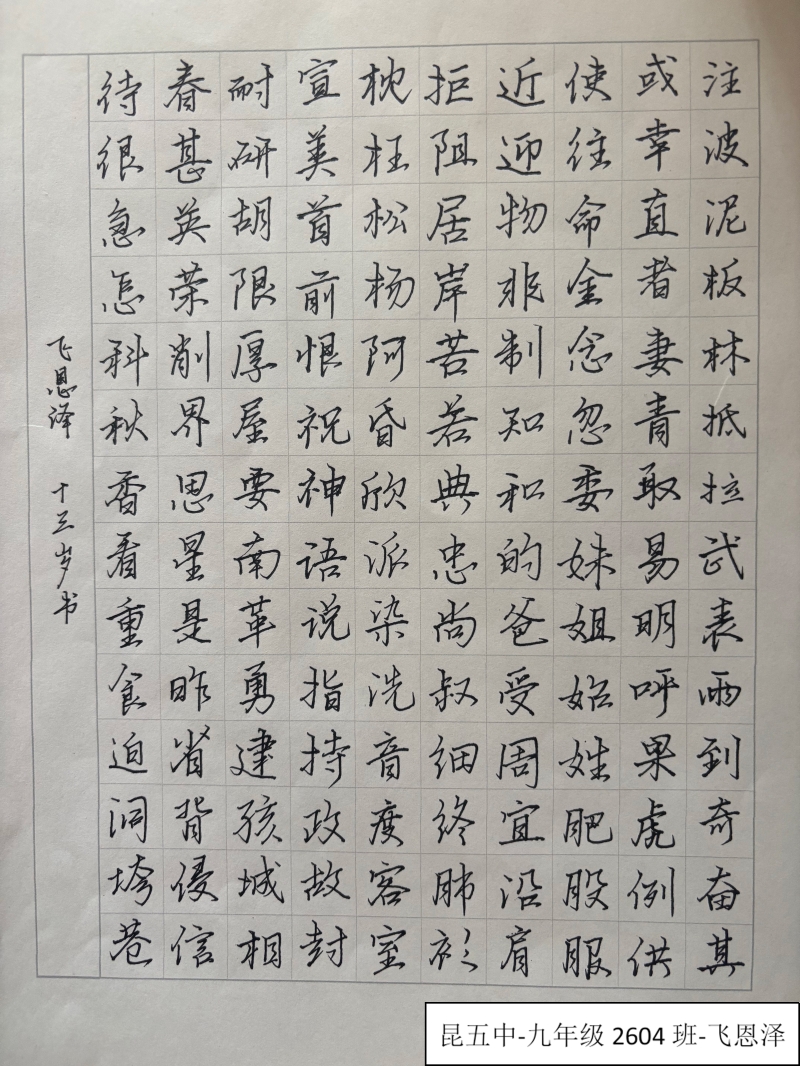 注波泥板林抵拉武表雨到奇奋其
或幸直者妻青取易明呼果虎例供
使往命金念忽委妹姐始姓肥股服
近迎物非制知和的爸受周宜沿肩
拒阻居岸苦若典忠尚叔细终肺衫
枕枉松杨阿昏欣派染洗音度客室
宣美首前恨祝神语说指持政故封
耐研胡限厚屋要南革勇建孩城相
春甚英荣削界思星是昨省背侵信
待很急怎科秋香看重食迫洞垮巷
飞恩泽 十三岁书
昆五中-九年级 2604 班-飞恩泽